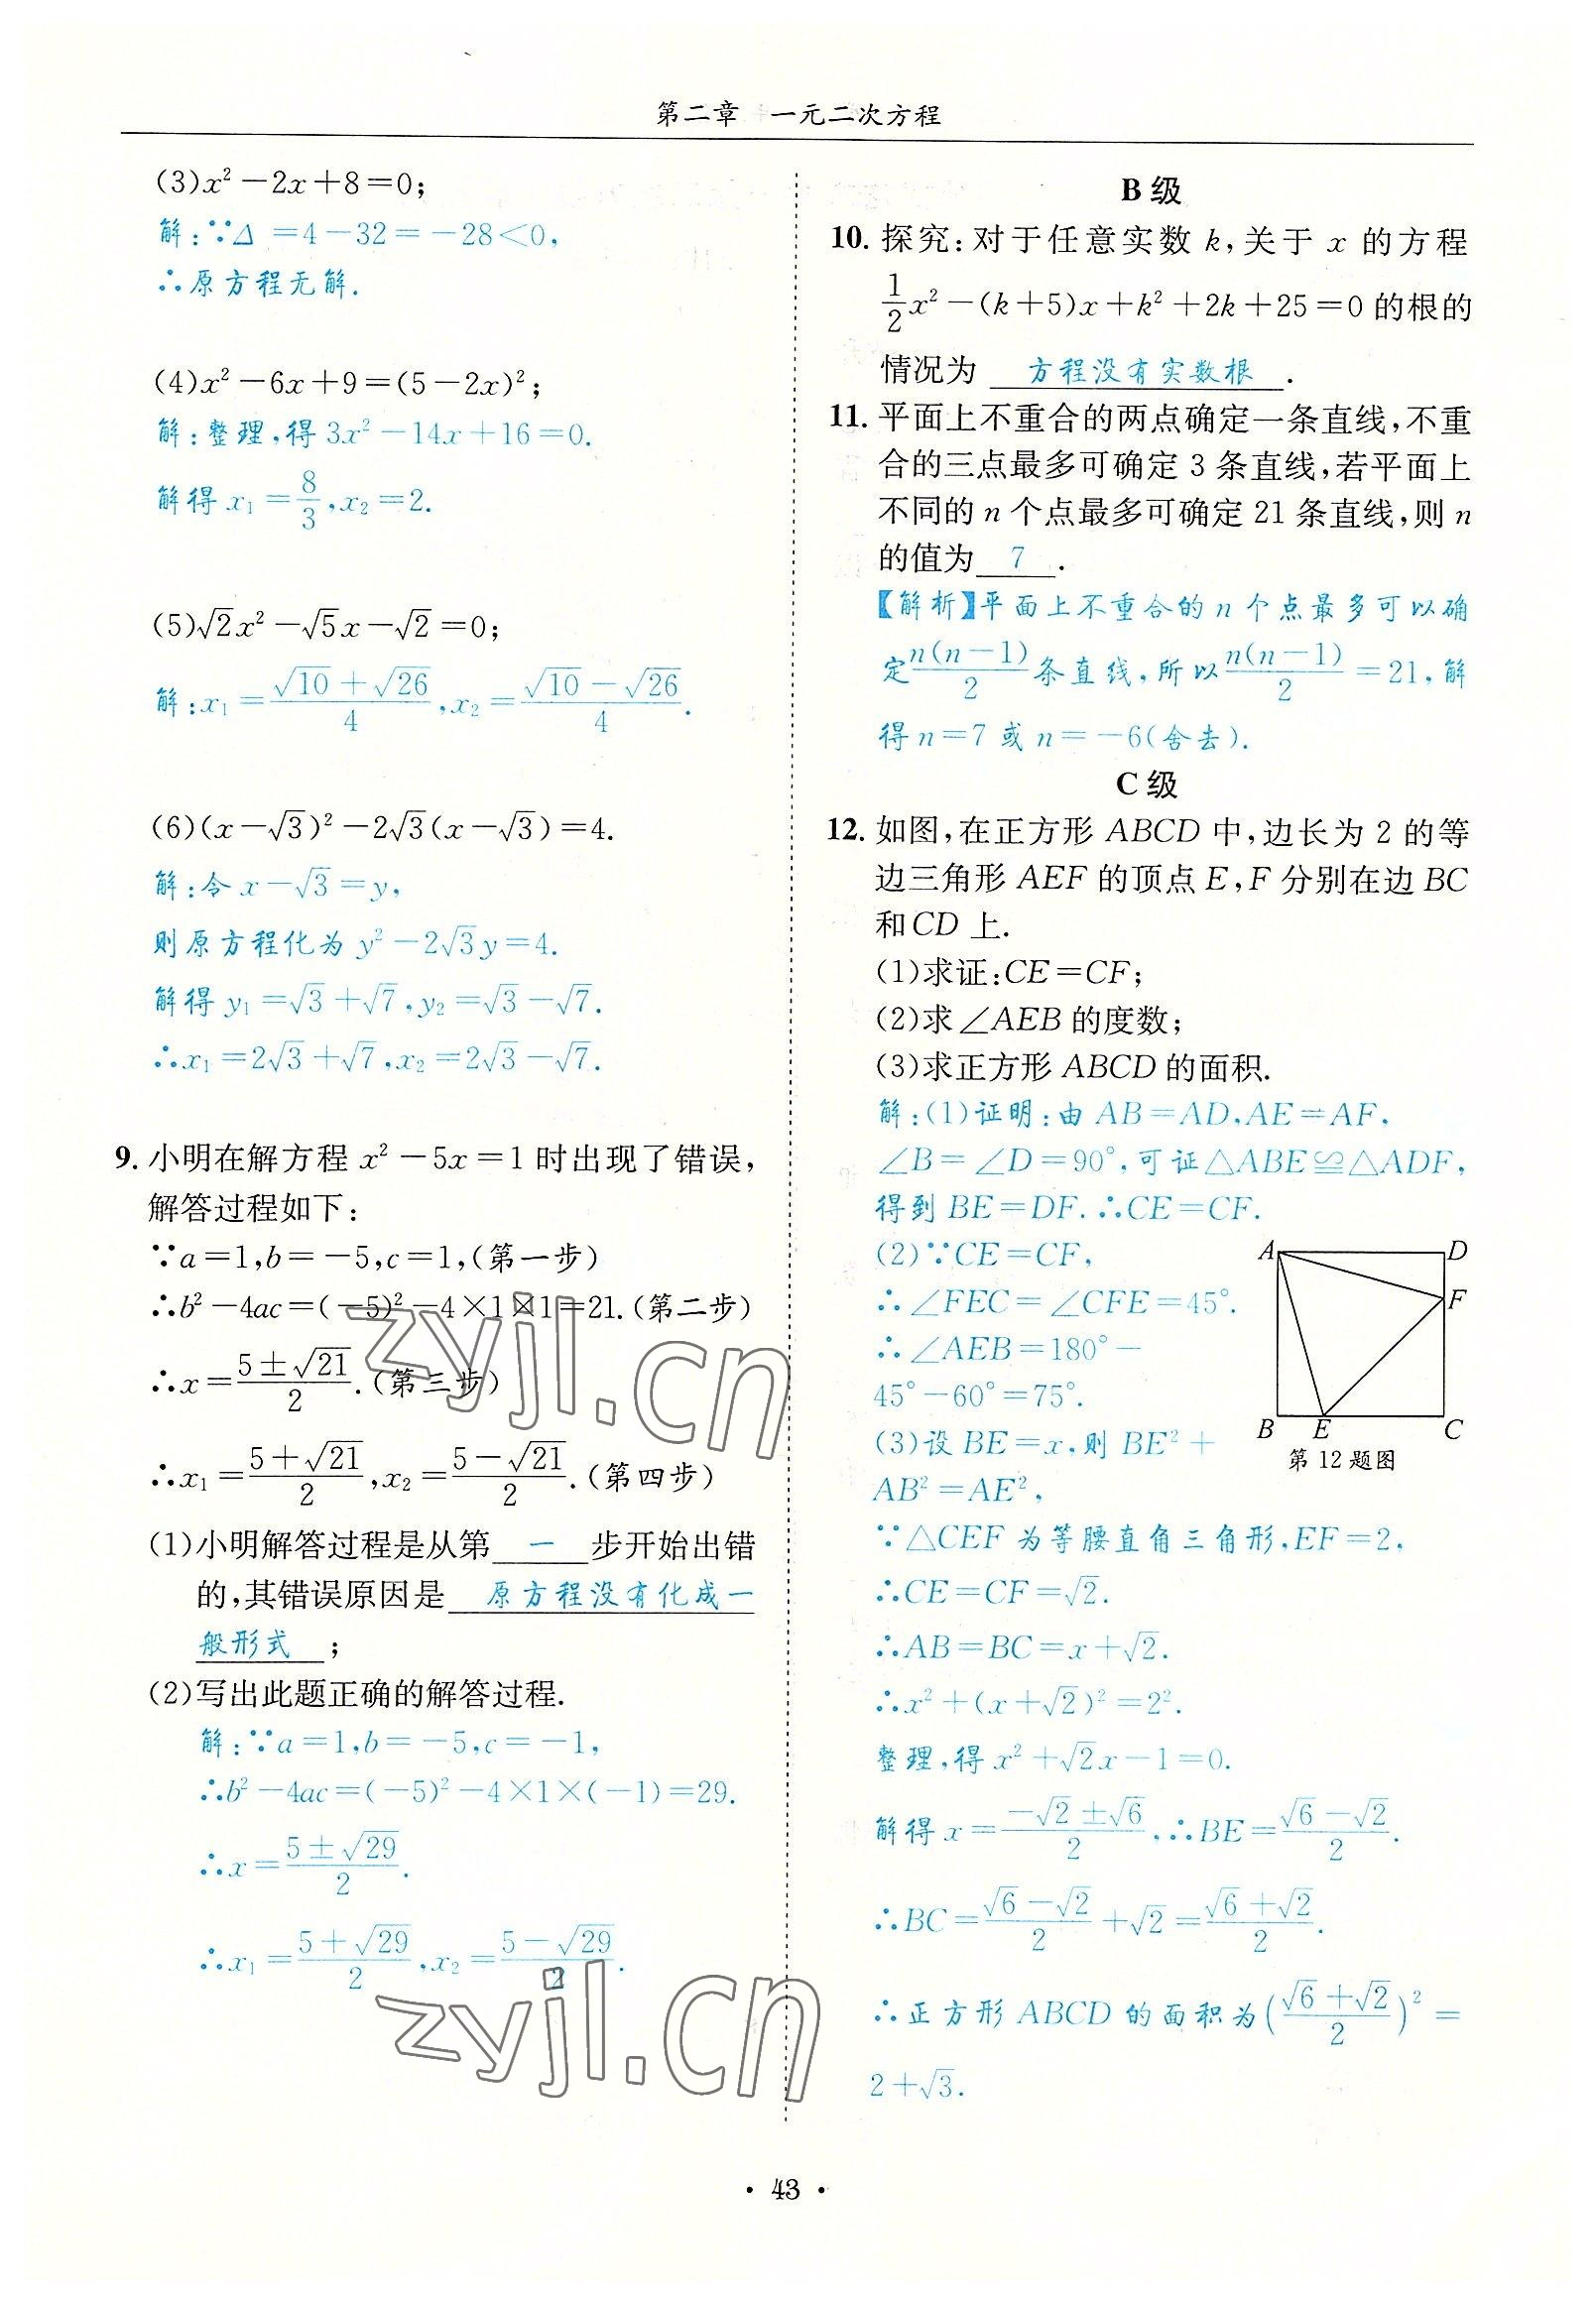 第二章 一元二次方程
(3)x²－2x＋8＝0;
解:∵Δ＝4－32＝－28＜0,
∴原方程无解.
(4)x²－6x＋9＝(5－2x)²;
解:整理,得3x²－14x＋16＝0.
解得x₁＝8/3,x₂＝2.
(5)√2x²－√5x－√2＝0;
解:x₁＝(√10＋√26)/4,x₂＝(√10－√26)/4.
(6)(x－√3)²－2√3(x－√3)＝4.
解:令x－√3＝y,
则原方程化为y²－2√3y＝4.
解得y₁＝√3＋√7,y₂＝√3－√7.
∴x₁＝2√3＋√7,x₂＝2√3－√7.
9. 小明在解方程x²－5x＝1时出现了错误,
解答过程如下:
∵a＝1,b＝－5,c＝1,(第一步)
∴b²－4ac＝(－5)²－4×1×1＝21.(第二步)
∴x＝(5±√21)/2.(第三步)
∴x₁＝(5＋√21)/2,x₂＝(5－√21)/2.(第四步)
(1)小明解答过程是从第 一 步开始出错
的,其错误原因是 原方程没有化成一
般形式 ;
(2)写出此题正确的解答过程.
解:∵a＝1,b＝－5,c＝－1,
∴b²－4ac＝(－5)²－4×1×(－1)＝29.
∴x＝(5±√29)/2.
∴x₁＝(5＋√29)/2,x₂＝(5－√29)/2.
B级
10. 探究:对于任意实数k,关于x的方程
1/2x²－(k＋5)x＋k²＋2k＋25＝0的根的
情况为 方程没有实数根 .
11. 平面上不重合的两点确定一条直线,不重
合的三点最多可确定3条直线,若平面上
不同的n个点最多可确定21条直线,则n
的值为 7 .
【解析】平面上不重合的n个点最多可以确
定n(n－1)/2条直线,所以n(n－1)/2＝21,解
得n＝7或n＝－6(舍去).
C级
12. 如图,在正方形ABCD中,边长为2的等
边三角形AEF的顶点E,F分别在边BC
和CD上.
(1)求证:CE＝CF;
(2)求∠AEB的度数;
(3)求正方形ABCD的面积.
解:(1)证明:由AB＝AD,AE＝AF,
∠B＝∠D＝90°,可证△ABE≌△ADF,
得到BE＝DF.∴CE＝CF.
(2)∵CE＝CF,
∴∠FEC＝∠CFE＝45°.
∴∠AEB＝180°－
45°－60°＝75°.
(3)设BE＝x,则BE²＋
AB²＝AE²,
A D
F
B E C
第12题图
∵△CEF为等腰直角三角形,EF＝2,
∴CE＝CF＝√2.
∴AB＝BC＝x＋√2.
∴x²＋(x＋√2)²＝2².
整理,得x²＋√2x－1＝0.
解得x＝(－√2±√6)/2.∴BE＝(√6－√2)/2.
∴BC＝(√6－√2)/2＋√2＝(√6＋√2)/2.
∴正方形ABCD的面积为((√6＋√2)/2)²＝
2＋√3.
zyjl.cn
zyjl.cn
· 43 ·